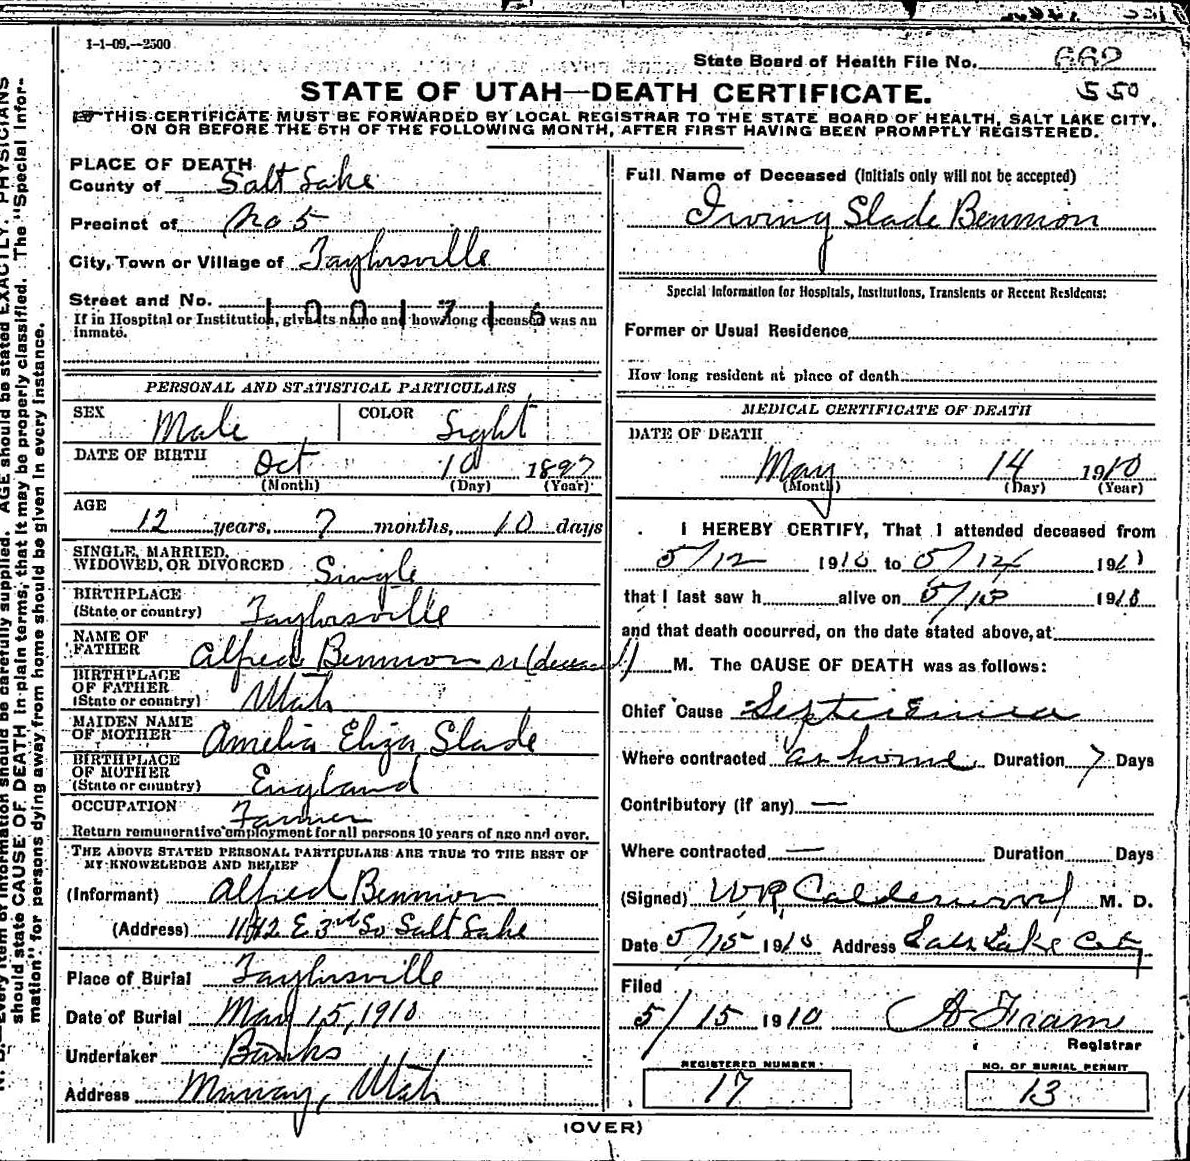 1-1-09.--2500
State Board of Health File No. 662
550
STATE OF UTAH—DEATH CERTIFICATE.
THIS CERTIFICATE MUST BE FORWARDED BY LOCAL REGISTRAR TO THE STATE BOARD OF HEALTH, SALT LAKE CITY,
ON OR BEFORE THE 5TH OF THE FOLLOWING MONTH, AFTER FIRST HAVING BEEN PROMPTLY REGISTERED.
PLACE OF DEATH
County of Salt Lake
Precinct of No 5
City, Town or Village of Taylorsville
Street and No.
1001716
If in Hospital or Institution, give its name and how long deceased was an
inmate.
PERSONAL AND STATISTICAL PARTICULARS
SEX Male COLOR Light
DATE OF BIRTH Oct 10 1897
(Month) (Day) (Year)
AGE
12 years, 7 months, 10 days
SINGLE, MARRIED,
WIDOWED, OR DIVORCED Single
BIRTHPLACE
(State or country) Taylorsville
NAME OF
FATHER Alfred Bennion sr (deceased)
BIRTHPLACE
OF FATHER
(State or country) Utah
MAIDEN NAME
OF MOTHER Amelia Eliza Slade
BIRTHPLACE
OF MOTHER
(State or country) England
OCCUPATION Farmer
Return remunerative employment for all persons 10 years of age and over.
THE ABOVE STATED PERSONAL PARTICULARS ARE TRUE TO THE BEST OF
MY KNOWLEDGE AND BELIEF
(Informant) Alfred Bennion
(Address) 1182 E 3rd So Salt Lake
Place of Burial Taylorsville
Date of Burial May 15, 1910
Undertaker Banks
Address Murray, Utah
Full Name of Deceased (Initials only will not be accepted)
Irving Slade Bennion
Special Information for Hospitals, Institutions, Transients or Recent Residents:
Former or Usual Residence
How long resident at place of death
MEDICAL CERTIFICATE OF DEATH
DATE OF DEATH
May 14 1910
(Month) (Day) (Year)
I HEREBY CERTIFY, That I attended deceased from
5/12 1910 to 5/14 191
that I last saw h alive on 5/13 1910
and that death occurred, on the date stated above, at
M. The CAUSE OF DEATH was as follows:
Chief Cause Septicemia
Where contracted at home Duration 7 Days
Contributory (if any) —
Where contracted — Duration Days
(Signed) W.R. Calderwood M. D.
Date 5/15 1910 Address Salt Lake City
Filed
5/15 1910 A Frame
Registrar
REGISTERED NUMBER
17
NO. OF BURIAL PERMIT
13
(OVER)
Every item of information should be carefully supplied. AGE should be stated EXACTLY. PHYSICIANS
should state CAUSE OF DEATH in plain terms, that it may be properly classified. The "Special Infor-
mation" for persons dying away from home should be given in every instance.